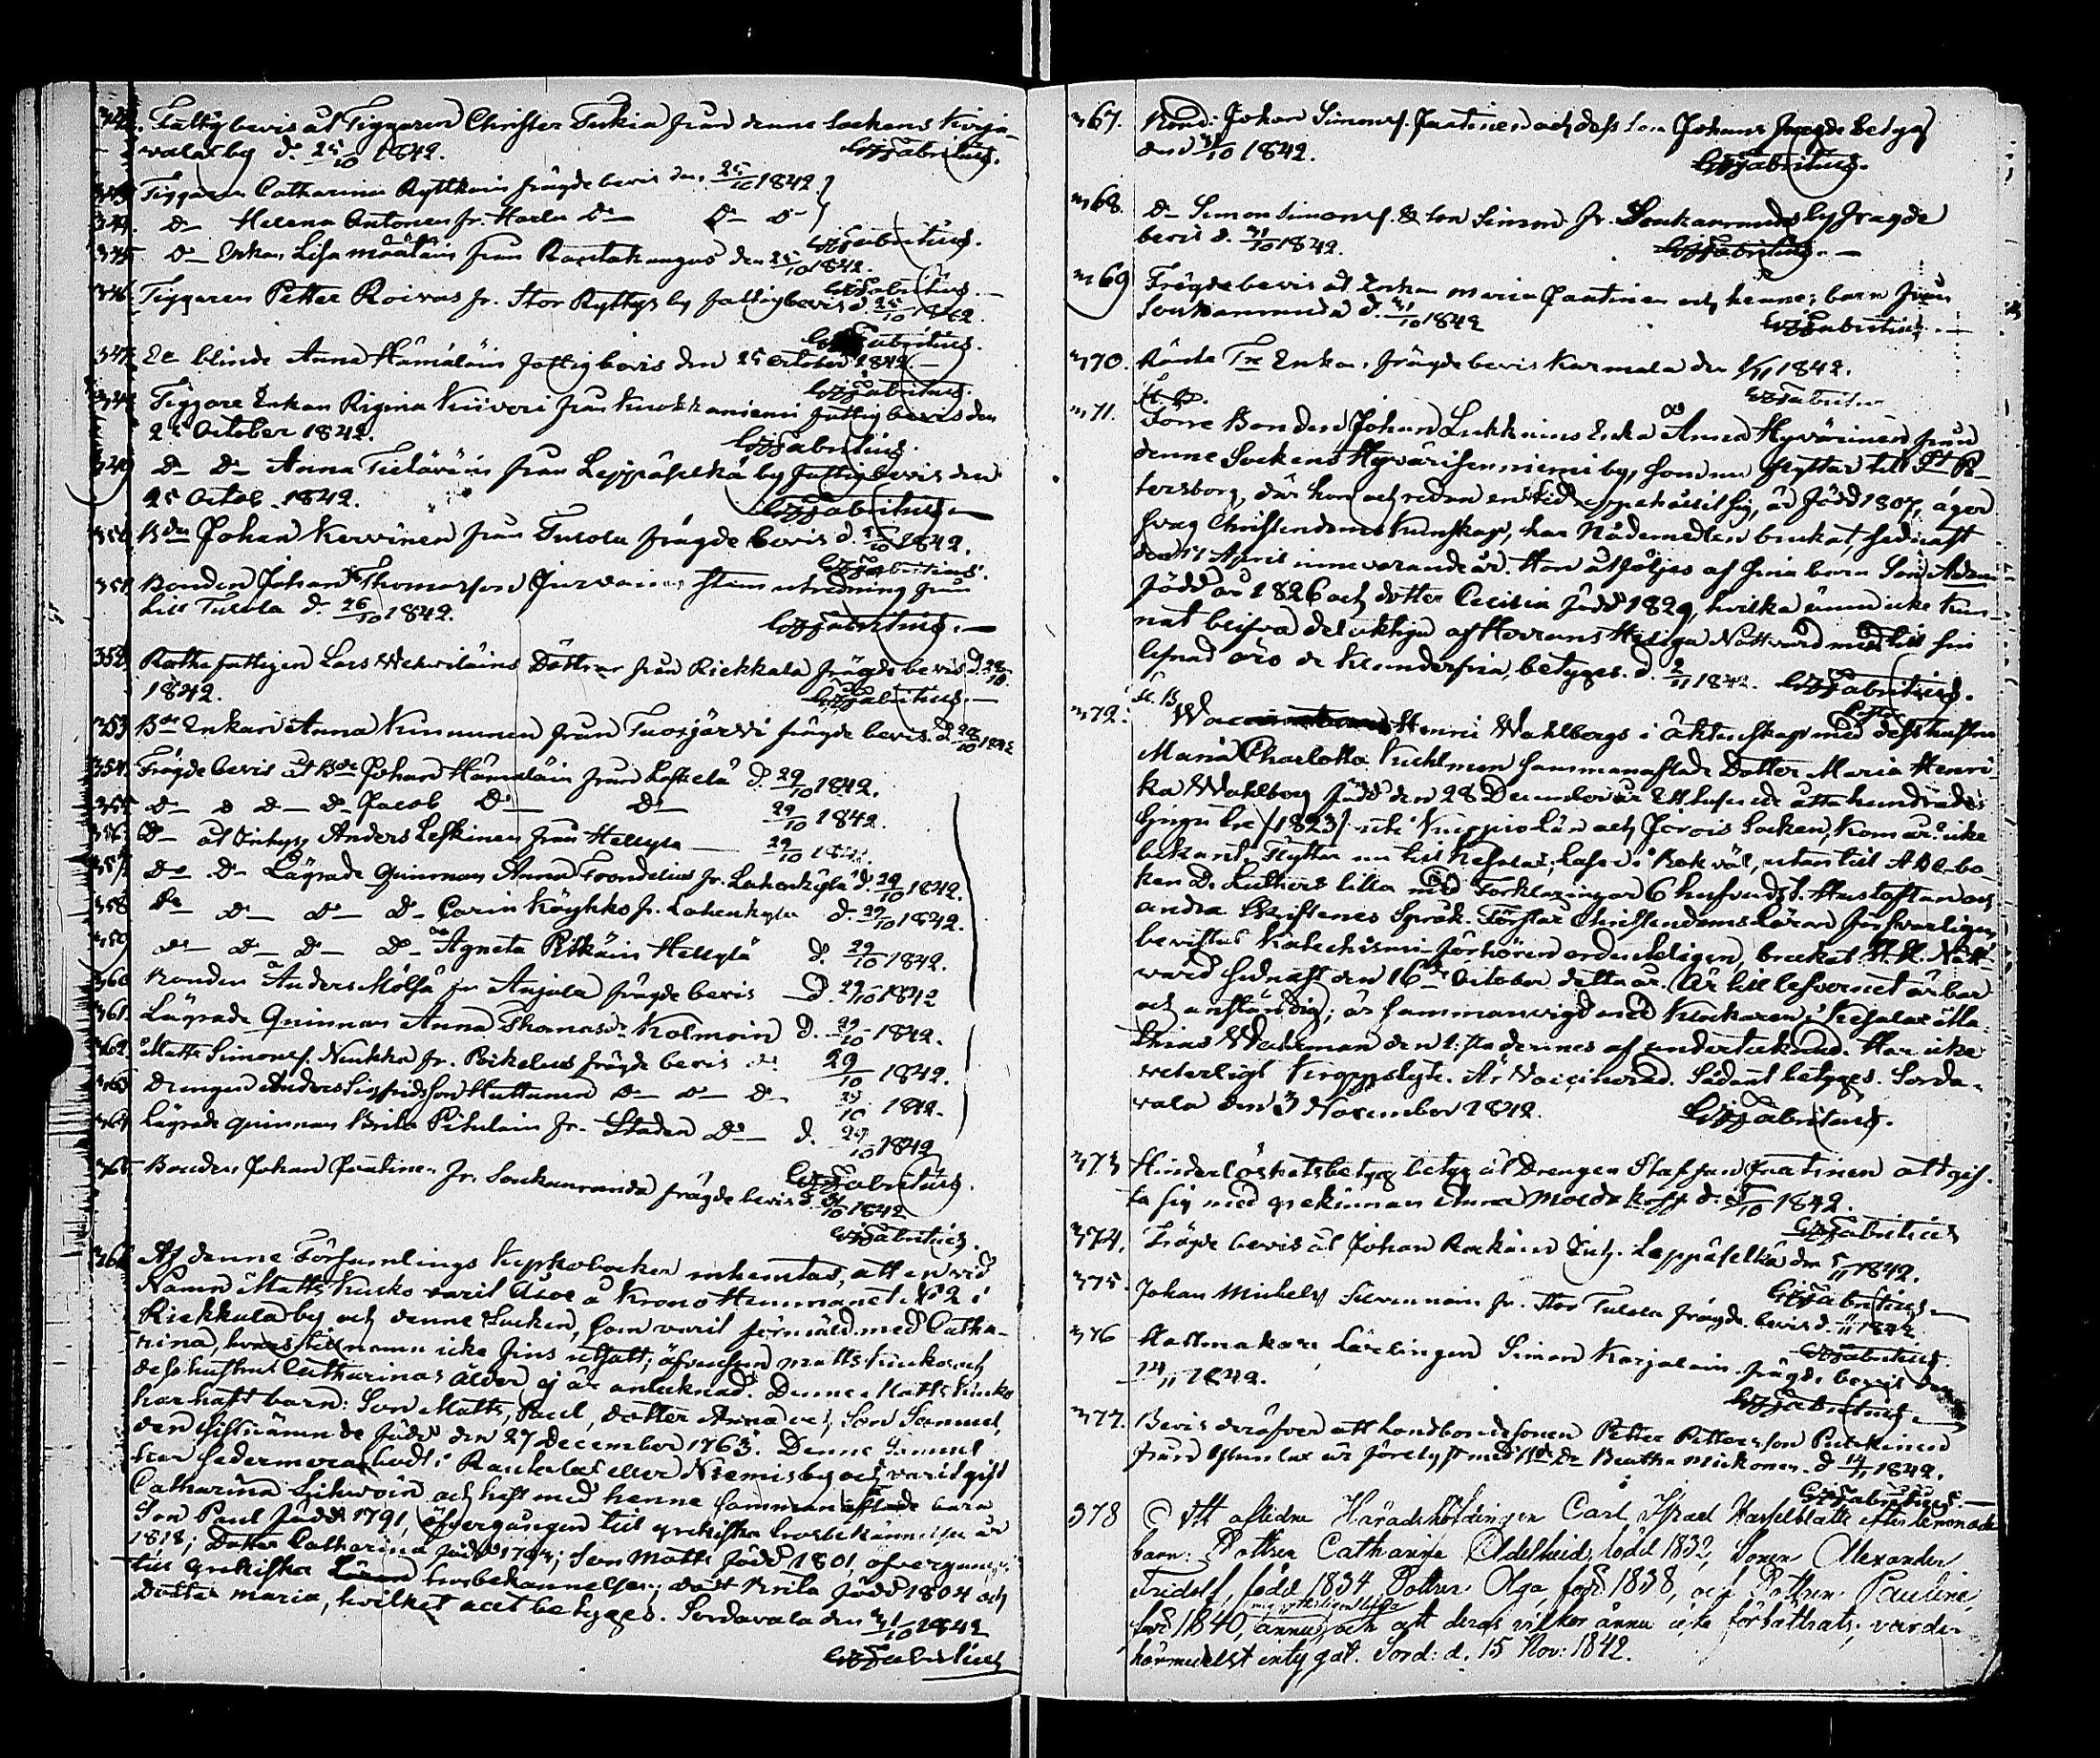 342. Fattigbevis åt Tiggaren Christer Tukia från denne Sockens Kirja-
valaxby d. 25/10 1842. Fabritius.
343 Tiggaren Catharina Ryttkäin frägdebevis den 25/10 1842.
344. D– Helena Antonen fr. Harlu D– D– D–
Fabritius.
345 D– Enkan Lisa Määtäin från Rautakangas den 25/10 1842.
Fabritius.
346 Tiggaren Petter Roivas fr. Stor Ryttys by fattigbevis d. 25/10 1842.
Fabritius.
347. blinde Anna Hämäläin fattigbevis den 25 October 1842.
Fabritius.
348 Tiggare Enkan Regina Kiiveri från Kuokkaniemi fattigbevis den
25 October 1842. Fabritius.
349 D– D– Anna från Leppäselkä by fattigbevis den
25 Octob. 1842. Fabritius.
350 Bden Johan Kervinen från Tulola frägde bevis d. 1842.
Fabritius.
351 Bonden Johan Thomasson utredning från
till Tulola d. 26/10 1842. Fabritius.
352 Rothefattigen Lars Döttrar från Riekkala frägdebevis d. 28/10
1842. Fabritius.
353 Bde Enkan Anna Kinnunen från Tuoxjärvi frägde bevis d. 28/10 1842
354. Frägdebevis åt Bde Johan Hämäläin från Läskelä d. 29/10 1842.
355 D– D D– D– Jacob D– D– 29/10 1842.
356 D– åt Inhys. Anders Leskinen från Helylä — 29/10 1842.
357 D– D– Lägrade Quinnan Anna Frondelius fr. d. 29/10 1842.
358 D– D– D– D– Carin Köyhkö fr. d. 29/10 1842.
359 D– D– D– D– Agneta Pitkäin Helylä d. 29/10 1842.
360 Bonden Anders Mölsä fr Anjala frägde bevis d. 29/10 1842
361. Lägrade Quinnan Anna Thomasdr Kolmoin d. 29/10 1842.
362. Matts Simonss. Neukka fr. frägde bevis d. 29/10 1842.
363 Drengen Anders Sigfridsson Huttunen D– D– D– 29/10 1842.
364 Lägrade quinnan Brita Pitulain fr. Staden D– d. 29/10 1842
Fabritius.
365 Bonden Johan Paatinen fr. Soukanranda frägde bevis d. 31/10 1842
Fabritius.
366 Af denne Församlings Kyrkoböcker inhemtas, att en vid
Namn Matts Kusko varit Åboe å Krono Hemmanet N:o 2 i
Riekkala by och denne Socken, som varit förmäld med Catha-
rina, hvars tillnamn icke fins utsatt; äfvensom Matts Kuskos och
dess hustrus Catharinas ålder ej är antecknad. Denne Matts Kusko
har haft barn: Son Matts, Paul, dotter Anna och Son Samuel,
den sistnämnde född den 27 December 1763. Denne Samuel
har sedermera bodt i Rantalax eller Niemis by och varit gift
Catharina och haft med henne sammanaflade barn
Son Paul född 1791, öfvergången till grekiska trosbekännelsen år
1818; Dotter Catharina född 1794; Son Matts född 1801, öfvergången
till grekiska trosbekännelsen; dott. Brita född 1804 och
Dotter Maria, hvilket allt betyges. Sordavala den 31/10 1842
Fabritius
367. Bond: Johan Simonss. Paatinen och dess son Johans frägde betyg
den 31/10 1842.
Fabritius.
368. D– Simon Simonss. & son Simon fr. Soukanranda by frägde
bevis d. 31/10 1842. Fabritius.
369 Frägdebevis åt Enkan Maria Paatinen och hennes barn från
Soukanranda d. 31/10 1842 Fabritius.
370. Enkan, frägdebevis Karmala den 1/11 1842.
Fabritius
371. Förre Bonden Johan Lukkains Enka Anna Hyvärinen från
denne Sockens Hyvärisenniemi by, som nu flyttar till St Pe-
tersborg, där hon och redan en tid uppehållit sig, är född 1807, äger
svag Christendoms Kunskap, har Nådemedlen brukat, sednast
den 17 April innevarande år. Hon åtföljes af sina barn Son Adam
född år 1826 och dotter Cecilia född 1829, hvilka ännu icke kun-
nat blifva delaktiga af Herrans Heliga Nattvard med till sin
lefnad äro de klanderfria, betyges. d. 2/11 1842. Fabritius.
372. Henric Wahlbergs i äktenskap med dess hustru
Maria Charlotta Kuhlman sammanaflade Dotter Maria Henri-
ka Wahlberg född den 28 December år Ett tusende åtta hundrade
tjugu tre /1823/ uti Kuopio Län och Jorois Socken, kom är icke
bekant, flyttar nu till Kesälax; Läser i bok väl, utantill ABC bo-
ken D. Luthers lilla med Förklaringar 6 hufvudst. Hustaflan och
andra Skriftenes Språk. Förstår Christendoms Läran försvarligen
bevistat Katechismi förhören ordenteligen, brukat H. H. Natt-
vard sednast den 16de October detta år. Är till lefvernet ärbar
och anständig; är sammanvigd med Klockaren i Kesälax Ma-
thias den 1:sta dennes af undertecknad. Har icke
veterligt Kroppslyte. Är Vaccinerad. Sådant betyges. Sorda-
vala den 3 November 1842. Fabritius.
373 Hinderlöshetsbetyg betyg åt Drengen Staffan Paatinen att gif-
ta sig med qvinnan Anna d. 1842.
Fabritius
374. Frägde bevis åt Johan Inh. Leppäselkä den 5/11 1842.
Fabritius
375. Johan Michelss Silvennoin fr. Stor Tulola frägde bevis d. 1842.
Fabritius.
376 Hattmakare Lärlingen Simon Karjalain frägde bevis den
14/11 1842. Fabritius.
377. Bevis deröfver att Landbondesonen Petter Pettersson Puckinen
från är förelyst med Bde Dr Beatha Mikkonen d. 14/11 1842.
Fabritius
378 Att aflidne Häradshöfdingen Carl Israel Hasselblatts efterlemnade
barn: Dottren Catharina Adelheid, född 1832, Sonen Alexander
Fridolf, född 1834, Dottren Olga, född 1838, och Dottren Pauline,
född 1840, ännu och att deras vilkor ännu icke förbättrats, varder
härmedelst intygat. Sord: d. 15 Nov: 1842.